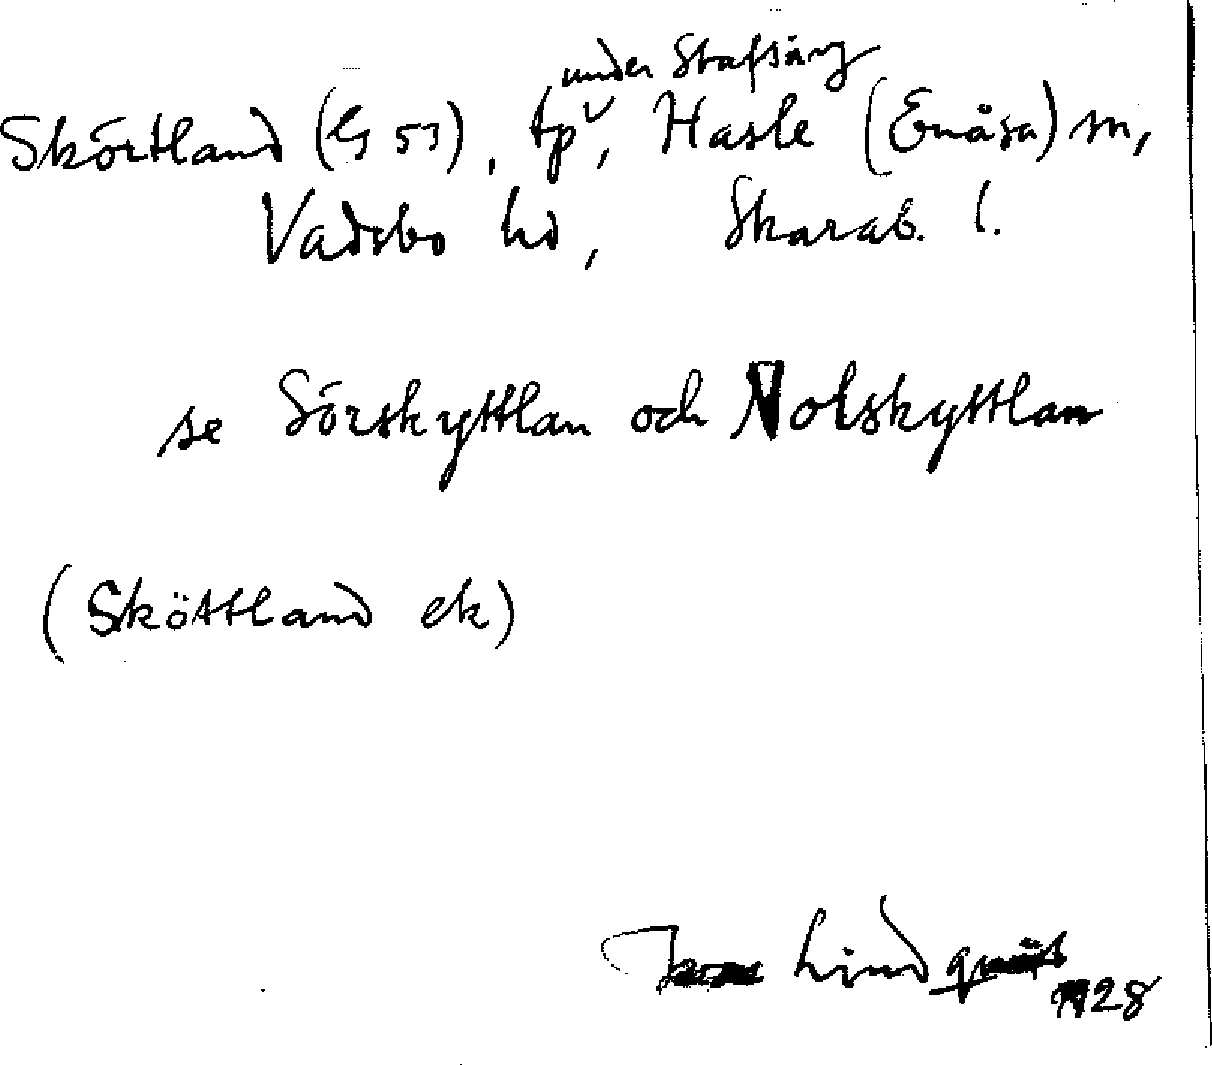 under Stafsäng
Skörtland (G 53), tp, Hasle (Enåsa) sn,
Vadsbo hd, Skarab. l.
se Sörskyttlan och Nolskyttlan
(Sköttland ek)
Ivar Lindquist
1928